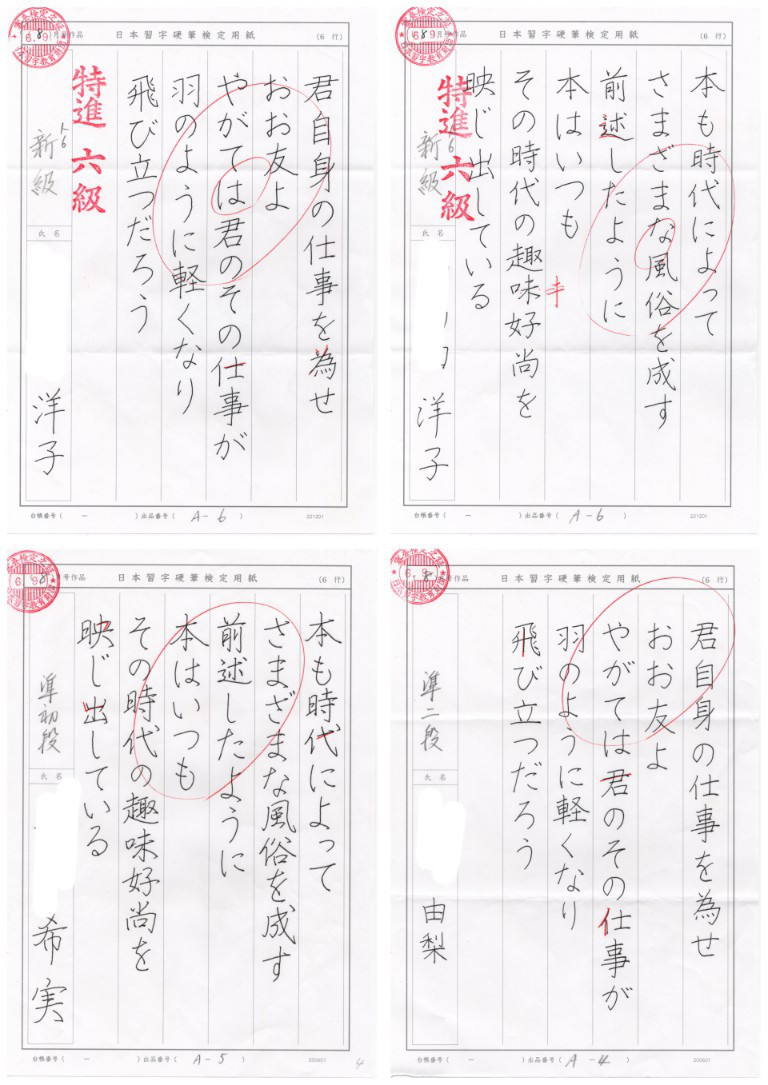 月号作品 日本習字硬筆検定用紙 (6 行)
君自身の仕事を為せ
おお友よ
やがては君のその仕事が
羽のように軽くなり
飛び立つだろう
特進 六級
新 級
氏 名
洋子
台帳番号( − )出品番号( A-6 ) 221201
月号作品 日本習字硬筆検定用紙 (6 行)
本も時代によって
さまざまな風俗を成す
前述したように
本はいつも
その時代の趣味好尚を
映じ出している
特進 六級
新 級
氏 名
洋子
台帳番号( − )出品番号( A-6 ) 221201
号作品 日本習字硬筆検定用紙 (6 行)
本も時代によって
さまざまな風俗を成す
前述したように
本はいつも
その時代の趣味好尚を
映じ出している
準初段
氏 名
希実
台帳番号( − )出品番号( A-5 ) 200601
号作品 日本習字硬筆検定用紙 (6 行)
君自身の仕事を為せ
おお友よ
やがては君のその仕事が
羽のように軽くなり
飛び立つだろう
準二段
氏 名
由梨
台帳番号( − )出品番号( A-4 ) 200601